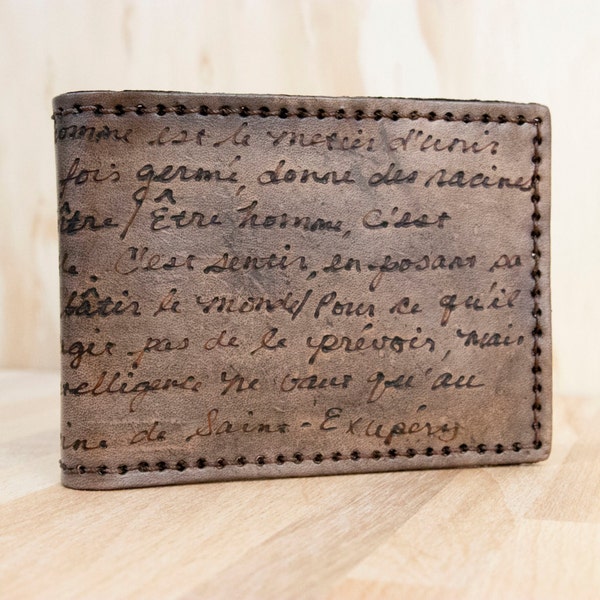 homme est le metier d'unir
fois germé, donne des racines
être / Être homme, c'est
C'est sentir, en posant sa
bâtir le monde / Pour ce qu'il
agir pas de le prévoir, mais
elligence ne vaut qu'au
ine de Saint-Exupéry